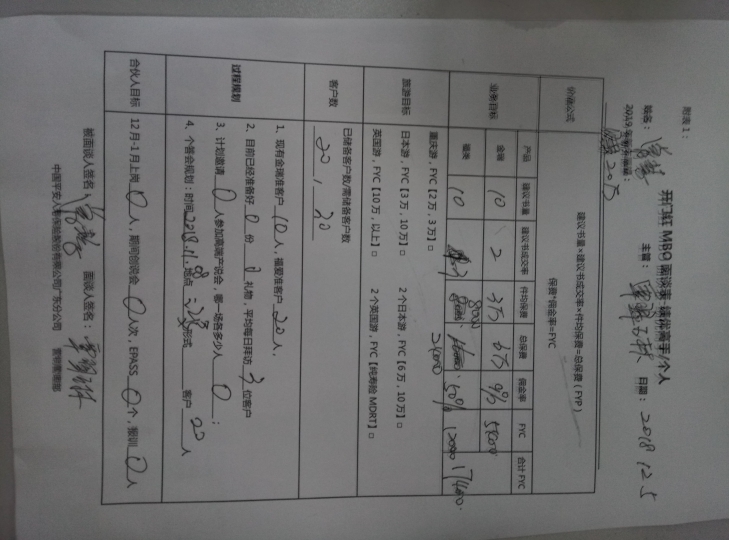 附表1：
开门红 MBO 面谈表-绩优高手/个人
姓名： 主管： 日期：2018 12 5
价值公式 建议书量×建议书成交率×件均保费=总保费（FYP）
保费*佣金率=FYC
业务目标 产品 建议书量 建议书成交率 件均保费 总保费 佣金率 FYC 合计FYC
金瑞 10 2 3万 6万 9%
福类 10 8000 50% 12000
24000
旅游目标 重庆游，FYC【2万，3万】□
日本游，FYC【3万，10万】□ 2个日本游，FYC【6万，10万】□
英国游，FYC【10万，以上】□ 2个英国游，FYC【纯寿险 MDRT】□
客户数 已储备客户数/需储备客户数
20 , 20
过程规划 1、现有金瑞准客户 10 人，福爱准客户 20 人，
2、目前已经准备好 0 份 0 礼物，平均每日拜访 3 位客户
3、计划邀请 0 人参加高端产说会，哪一场各多少人 0 ；
4、个答会规划：时间 地点 形式 客户 20 人
合伙人目标 12月-1月上岗 0 人，期间创说会 0 人次，EPASS 0 个，报训 0 人
被面谈人签名： 面谈人签名：
中国平安人寿保险股份有限公司广东分公司 营销管理部